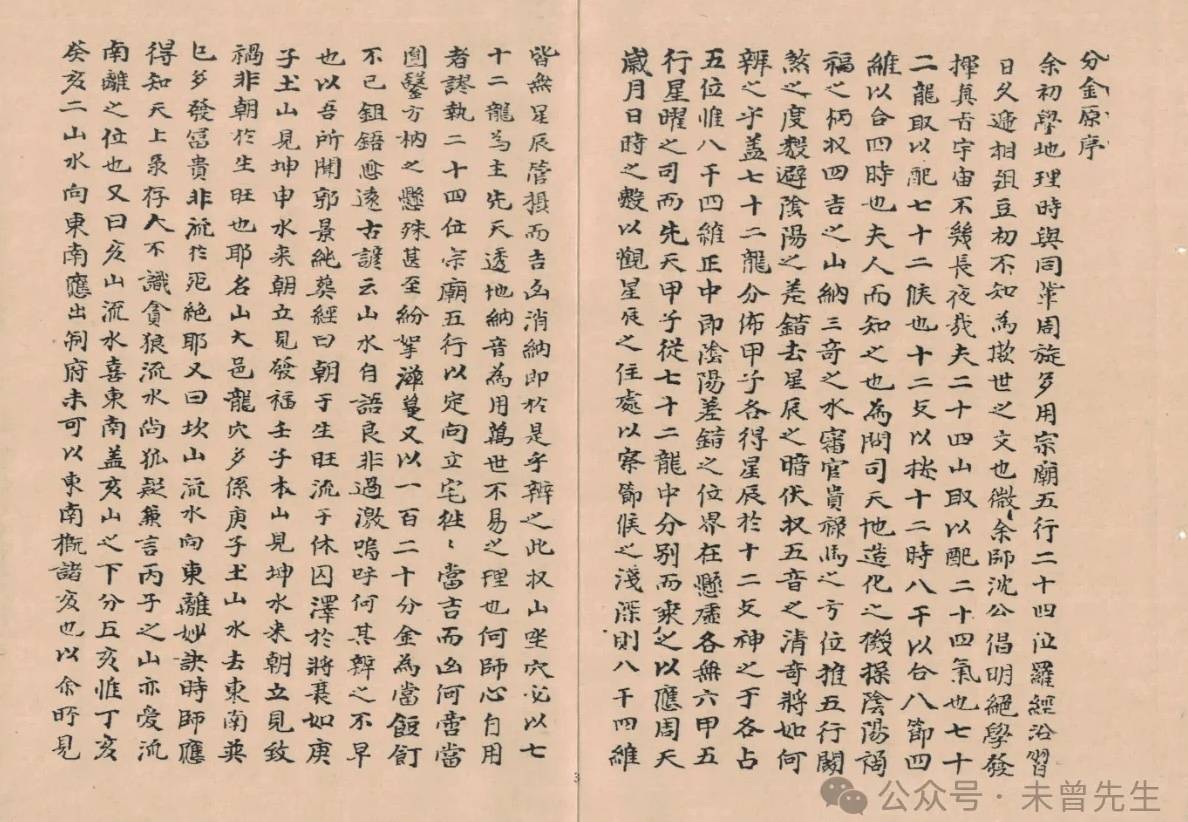 分金原序
余初學地理時與同輩周旋多用宗廟五行二十四位羅經沿習
日久遞相俎豆初不知為撳世之文也微余師沈公倡明絕學發
揮真古宇宙不幾長夜哉夫二十四山取以配二十四氣也七十
二龍取以配七十二候也十二支以按十二時八干以合八節四
維以合四時也夫人而知之也為問司天地造化之機操陰陽禍
福之柄收四吉之山納三奇之水審官貴祿馬之方位推五行闢
煞之度數避陰陽之差錯去星辰之暗伏收五音之清奇將如何
辨之乎蓋七十二龍分佈甲子各得星辰於十二支神之于各占
五位惟八干四維正中即陰陽差錯之位界在懸虛各無六甲五
行星曜之司而先天甲子從七十二龍中分別而乘之以應周天
歲月日時之數以觀星辰之住處以察節候之淺深則八干四維
皆無星辰管攝而吉凶消納即於是乎辨之此收山坐穴必以七
十二龍為主先天透地納音為用萬世不易之理也何師心自用
者謬執二十四位宗廟五行以定向立宅往〻當吉而凶何啻當
圓鑿方枘之懸殊甚至紛拏又以一百二十分金為當餖飣
不已鉏鋙愈遠古諺云山水自語良非過激嗚呼何其辨之不早
也以吾所聞郭景純葬經曰朝于生旺流于休囚澤於將衰如庚
子土山見坤申水來朝立見發福壬子木山見坤水來朝立見致
禍非朝於生旺也耶名山大邑龍穴多係庚子土山水去東南英
巳多發富貴非流於死絕耶又曰坎山流水向東離妙訣時師應
得知天上泉存人不識貪狼流水尚狐疑兼言丙子之山亦愛流
南離之位也又曰亥山流水喜東南蓋亥山之下分五亥惟丁亥
癸亥二山水向東南應出制府未可以東南概諸亥也以余所見
3
公众号·未曾先生